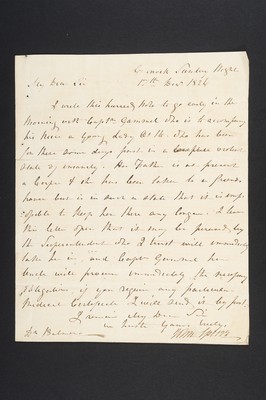 Greenock Sunday Night
17th Decr 1826
My Dear Sir
I write this hurried note to go early in the
Morning with Captn who is to accompany
his Niece a young Lady who has been
for these some days past in a complete violent
state of insanity. Her Father is at present
a & she has been taken to a friends
house but is in such a state that it is imp-
ossible to keep her there any longer. I leave
this letter open that it may be perused by
the Superintendent who I trust will immediately
take her in, and Captn her
Uncle will procure immediately the necessary
obligations, if you require any particular
Medical Certificate I will send it by post.
I remain My Dear Sir
in haste Yours truly
Dr